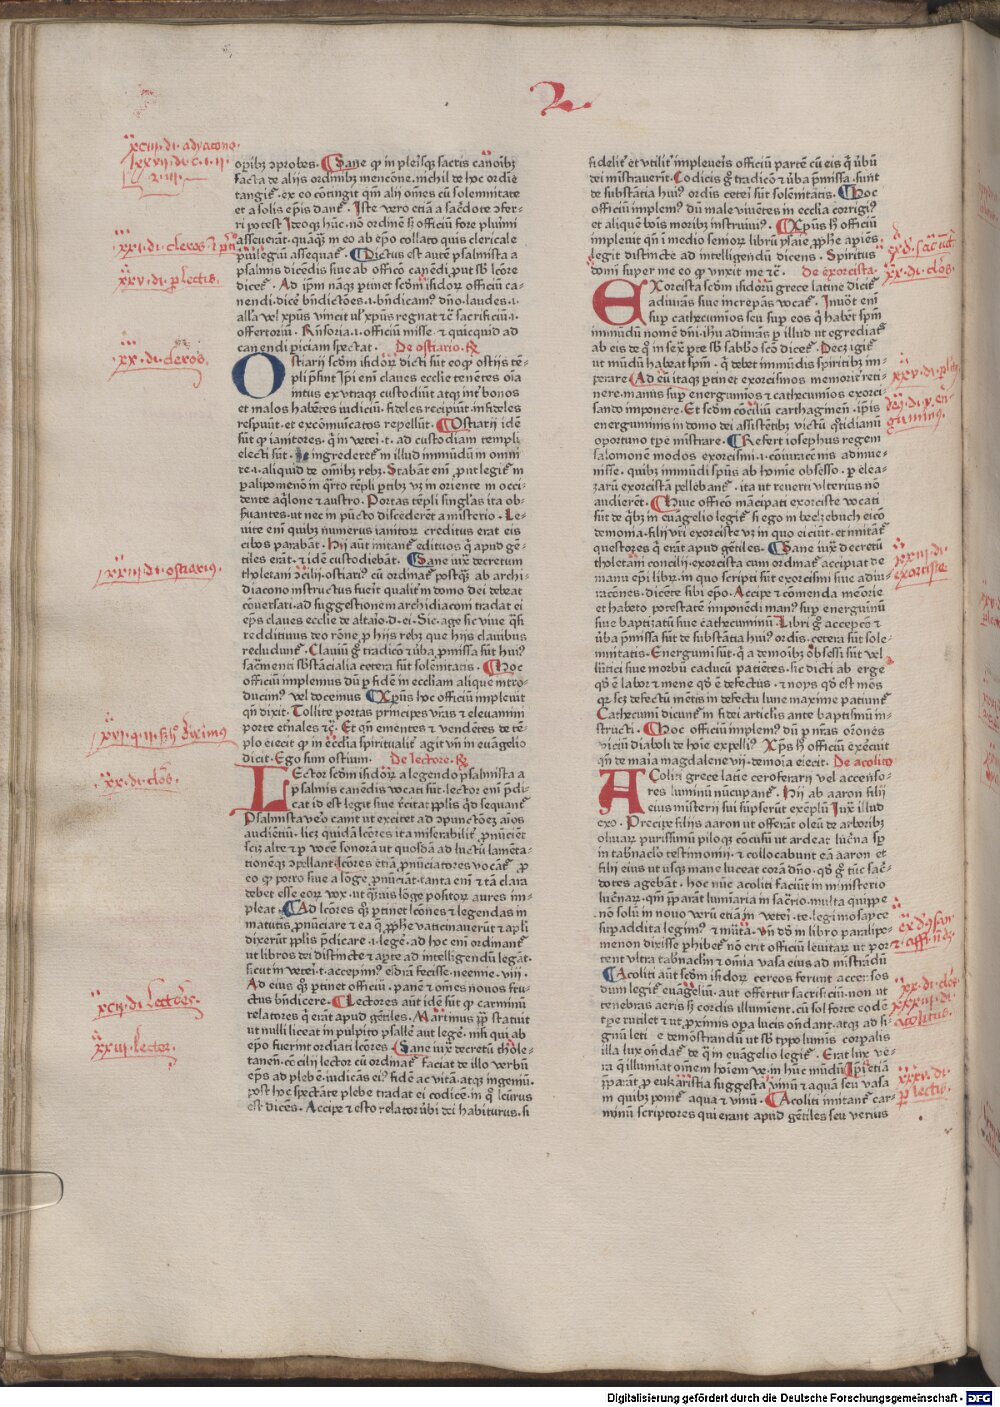 2.
xciii. di. adyacono.
xxi. di. cleros
xxv. di. perlectis.
xx. di. cleros.
xxiii. di. ostiarius.
xvi. q. ii.
xx. di. clos.
xcii. di. lectores.
xxiii. lector.
oꝑibꝫ ꝓprobes. Sane ꝙ in plerisqꝫ sacris canoibꝫ
facta de alijs ordinibꝫ mencone. michil de hoc ordie
tangit᷒. ex eo cōtingit qm̄ alij om̄es cū solemnitate
et a solis ep̄is dant᷒. Iste vero etiā a sac̄dote ɔfer-
ri potest
asseuerāt. quāqꝫ in eo ab ep̄o collato quis clericale
Dictus est autē psalmista a
psalmis dicēdis siue ab officō canēdi
dicet᷒. Ad ip̄m nāqꝫ ꝑtinet scd̄m isidorū officiū ca-
nendi. dicē bn̄dictōes. ı. bn̄dicam᷒ dn̄o. laudes. ı.
alla vel xp̄us vincit ul᷒ xp̄us regnat et sacrificiū. ı.
offertoriū. Rn̄soria. ı. officiū misse. et quicquid ad
canendi ꝑiciam spectat. De ostiario. Rx
Ostiarij scd̄m isidorū dicti sūt eo ꝙ ostijs tē-
pli
intus ex utraqꝫ custodiūt atqꝫ int᷒ bonos
et malos habētes iudiciū. fideles recipiūt. infideles
respuūt. et excōmuicatos repellūt. Ostiarij idē
sūt ꝙ ianitores. ꝙ in veteri. t. ad custodiam templi
electi sūt. ne ingrederet᷒ in illud immūdū in omni
re. ı. aliquid de om̄ibꝫ rebꝫ. Stabāt eni ꝓut legit᷒ in
paralipomenō in q̄rto tēpli ꝑtibꝫ vꝫ in oriente in occi-
dente aq̄lone et austro. Portas tēpli sinḡlas ita ob-
s̄uantes. ut nec in pūcto discederēt a misterio. Le-
uite eni quibꝫ numerus ianitorꝫ creditus erat eis
cibos parabāt. Hij aūt imitant᷒ edituos q̄ apud gē-
tiles erāt. et idē custodiebāt. Sane iux̄ decretum
tholetani ɔcilij. ostiari᷒ cū ordinat᷒ postꝙ ab archi-
diacono instructus fuerit qualit᷒ in domo dei debeat
cōuersari. ad suggestionem archidiaconi tradat ei
ep̄s claues ecclie de altario. d. ei. Sic age sic viue q̄si
redditurus deo rōnē ꝓ hijs rebꝫ que hijs clauibus
recludunt᷒. Clauiū g̊ tradicō et ūba p̄missa sūt hui᷒
sac̄menti sb̄stācialia cetera sūt solēnitatis. Hoc
officiū implemus dū ꝑ fidē in eccliam alique intro-
ducim᷒ vel docemus Xp̄us hoc officiū impleuit
qn̄ dixit. Tollite portas principes vr̄as et eleuamini
porte et̄nales etc̄. Et qn̄ ementes et vendētes de tē-
plo eiecit ꝙ in ecclia spiritualit᷒ agit vn̄ in euāgelio
dicit. Ego sum ostium. De lectore. Rx
Lector scd̄m isidorꝫ a legendo psalmista a
psalmis canēdis vocati sūt. lector eni p̄di-
cat id est legit siue recitat ppl̄is qd̄ sequant᷒
Psalmista vero canit ut excitet ad ɔpunctōeꝫ aīos
audiētiū. licꝫ quidā lc̄ores ita miserabilit᷒ ꝓnūciēt
scꝫ alte et ꝑ vocē sonorā ut quosdā ad luctū lamēta-
tionēqꝫ ɔpellant. lc̄ores etiā ꝓnūciatores vocāt᷒. ꝑ
eo ꝙ porro siue a lōge ꝓnūciāt. tanta eni et tā clara
debet esse eorꝫ vox. ut q̄ntūuis lōge positorꝫ aures im-
pleat. Ad lc̄ores q̄ꝫ ꝑtinet lc̄ones et legendas in
matutis ꝓnūciare et ea q̄ ꝓphe vaticinauerūt et ap̄li
dixerūt ppl̄is p̄dicare. ı. legē. ad hoc eni ordinant᷒
ut libros dei distincte et aꝑte ad intelligendū legāt.
sicut in vetei. t. accepim᷒. esdrā fecisse. neemie. viij.
Ad eius q̄ꝫ ꝑtinet officiū. panē et om̄es nouos fru-
ctus bn̄dicere. Lectores aūt idē sūt ꝙ carminū
relatores q̄ erāt apud gētiles. Martinus pp̄ statuit
ut nulli liceat in pulpito psallē aut legē. nisi qui ab
ep̄o fuerint ordiati lc̄ores. Sane iux̄ decretū thole-
tanēn. ɔcilij lector cū ordinat᷒ faciat de illo verbū
ep̄s ad plebē. indicās ei᷒ fidē ac vitā. atqꝫ ingeniū.
post hoc spectāte plebe tradat ei codicē. in q̊ lc̄urus
est dicēs. Accipe et esto relator ūbi dei habiturus. si
fidelit᷒ et vtilit᷒ impleueris officiū partē cū eis q̄ ūbū
dei mīstrauerūt. Codicis g̊ tradicō et ūba p̄missa. sunt
de substātia hui᷒ ordīs cetei sūt solēnitatis. Hoc
officiū implem᷒ dū male viuētes in ecclia corrigi᷒
et aliquē bōis moribꝫ instruim᷒. Xp̄us hͦ officiū
impleuit qn̄ i medio semiorꝫ librū ysaie ꝓphe apiēs
legit distincte ad intelligendū dicens. Spiritus
domi super me eo ꝙ vnxit me etc̄. De exorcista.
Exorcista scd̄m isidorū grece latine dicit᷒
adiurās siue increpās vocat᷒. Inuocāt eni
sup cathecuminos seu sup eos q̄ habēt spm̄
immūdū nomē dn̄i. ihū adiurās ꝑ illud ut egrediat᷒
ab eis
ut mūdū habeat spm̄. q̄ debet immūdis spiritibꝫ im-
perare. Ad eū itaqꝫ ꝑtinet exorcismos memorit᷒ reti-
nere. manus sup energuminos et cathecuminos exorci-
sando imponere. Et scd̄m cōciliū carthaginen. ip̄is
energuminis in domo dei assistētibꝫ victū q̊tidianū
oportuno tp̄e mīstrare. Refert iosephus regem
salomonē modos exorcismi. ı. cōiuracōis adinue-
nisse. quibꝫ immūdi spūs ab hoie obsesso. ꝑ elea-
zarū exorcistā pellebant᷒. ita ut reuerti vlterius nō
audierēt. Huic officō māncipati exorciste vocati
sūt de q̄bꝫ in euāgelio legit᷒ si ego in beelzebuch eicio
demonia. filij vri exorciste vꝫ in quo eiciūt. et imitāt᷒
questores q̄ erāt apud gētiles. Sane iux̄ decretū
tholetani concilij. exorcista cum ordinat᷒ accipiat de
manu ep̄i libꝝ. in quo scripti sūt exorcismi siue adiu-
racōnes. dicēte sibi ep̄o. Accipe et cōmenda meōrie
et habeto potestatē imponēdi man᷒ sup energuminū
siue baptizatū siue cathecuminū. Libri g̊ accepcō et
ūba p̄missa sūt de substātia hui᷒ ordis. cetera sūt sole-
nnitatis. Energumi sūt. q̄ a demoibꝫ obsessi sūt vel
lūtici siue morbū caducū patiētes. sic dicti ab erge
qd̄ ē labor et mene qd̄ ē defectus. et noys qd̄ est mōs
qꝛ scꝫ defectū mētis in defectu lune maxime patiunt᷒
Cathecumi dicunt᷒ in fidei articlis ante baptismū in-
structi. Hoc officiū implem᷒ dū ꝑ nr̄as orōnes
viciū diaboli de hoie expellim᷒. Xp̄s hͦ officiū exercuit
qn̄ de maīa magdalene vij. demōia eiecit. De acolito
Acoliti grece latie ceroferarij vel accenso-
res luminū nūcupant᷒. Hij ab aaron filij
eius misterij sui sūpserūt exēplū Iux̄ illud
exo. Precipe filijs aaron ut offerāt oleū de arboribꝫ
oliuarꝫ purissimū piloqꝫ cōtusū ut ardeat luc̄na sp̄
in tab̄naclo testimonij. et collocabunt eā aaron et
filij eius ut usqꝫ mane luceat corā dn̄o. qd̄ g̊ tūc sac̄-
dotes agebāt. hoc nūc acoliti faciūt in ministerio
luc̄narꝫ. qm̄ p̄parāt luminaria in sac̄rio. multa quippe
nō solū in nouo verū etiā in vetei. te. legimo sapīe
supaddita legim᷒ et mutata. vn̄ dd̄ in libro paralipo-
menon dixisse ꝓhibet᷒ nō erit officiū leuitarꝫ ut por-
tent vltra tabnaclm̄ et om̄ia vasa eius ad mīstrādū
Acoliti aūt scd̄m isidorꝫ cereos ferunt accensos
dum legit᷒ euāgeliū. aut offertur sacrificiū. non ut
tenebras aeris hͦ cordis illuminent. cū sol forte codē
tp̄e rutilet et ut ꝓximis opa lucis on̄dant. atqꝫ ad si-
gnū leticie demōstrandū ut sb̄ typo luminis corpalis
illa lux on̄dat᷒ de q̊ in euāgelio legit᷒. Erat lux ve-
ra q̄ illuminat om̄em hoiem ve. in hūc mūdū. Ipi etiā
p̄parāt ꝑ eukaristia suggesta vinū et aquā seu vasa
in quibꝫ ponit᷒ aqua et vinū. Acoliti imitant᷒ car-
minū scriptores qui erant apud gētiles seu verius
xx. di. clos.
xxv. di. perlectis
xxiii. di. exorciste
xx. di. clos.
xxiii. di. acolitus.
xxv. di. perlectis.
Digitalisierung gefördert durch die Deutsche Forschungsgemeinschaft - DFG